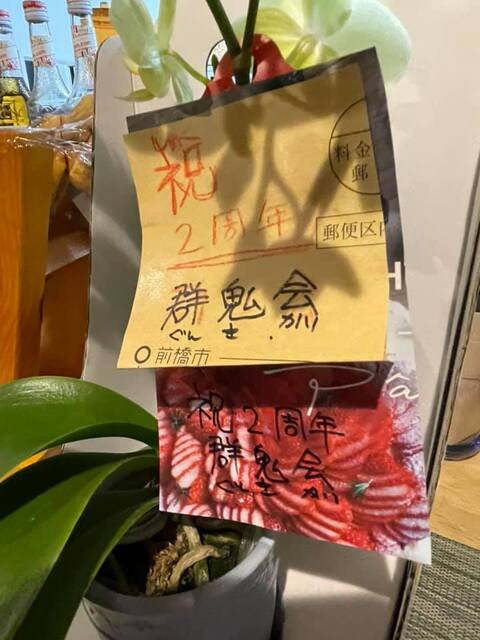 祝
料金
郵
2周年
郵便区内
群鬼会
ぐんき.かい
前橋市
祝2周年
群鬼会
ぐんきかい